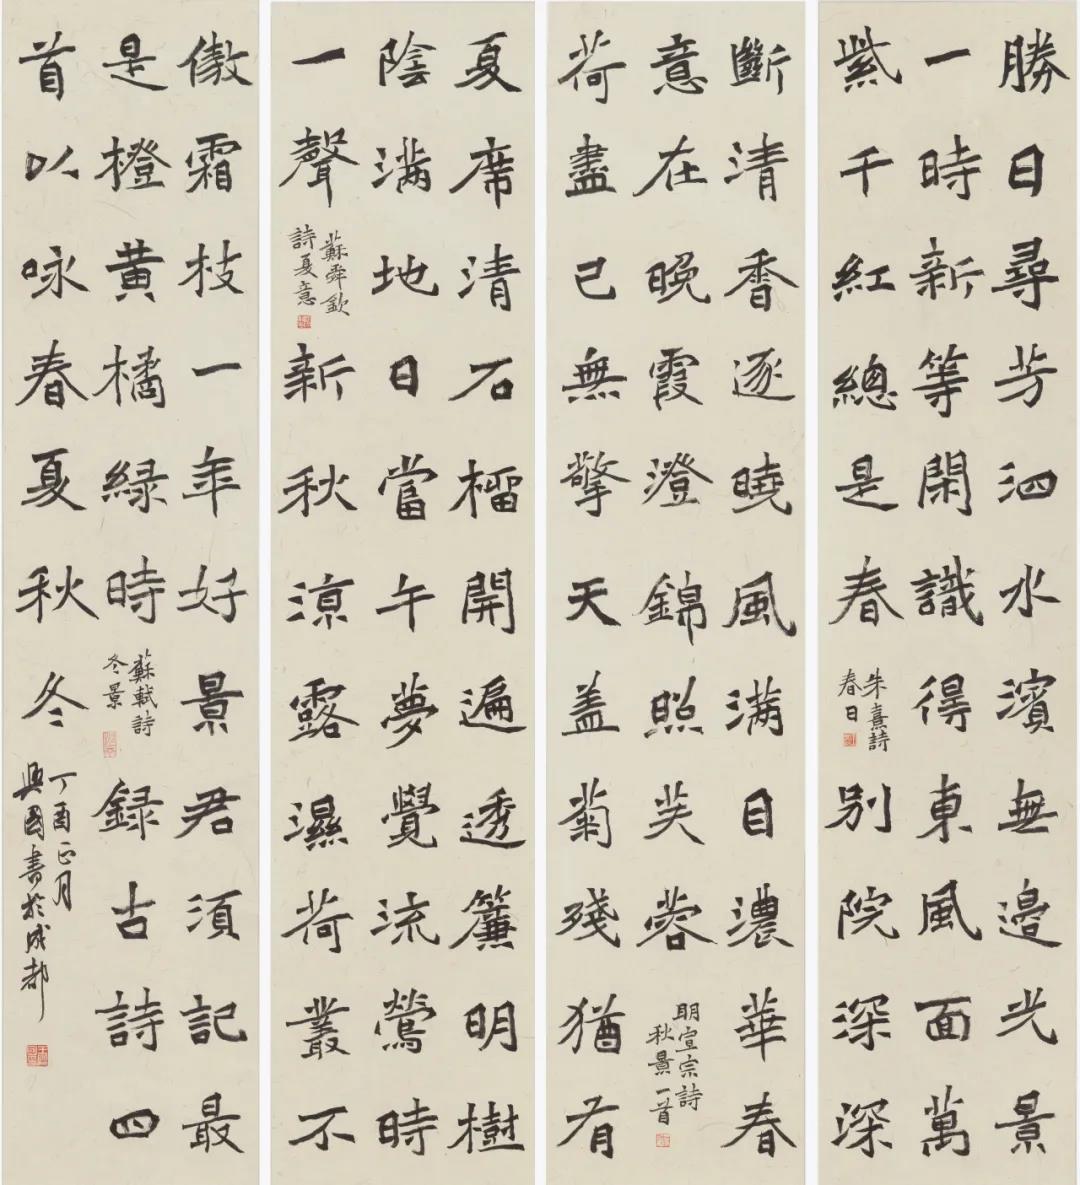 勝日尋芳泗水濱無邊光景
一時新等閑識得東風面萬
紫千紅總是春
朱熹詩
春日
别院深深
夏席清石榴開遍透簾明樹
陰滿地日當午夢覺流鶯時
一聲
蘇舜欽
詩夏意
新秋涼露濕荷叢不
斷清香逐曉風滿目濃華春
意在晚霞澄錦照芙蓉
明宣宗詩
秋景一首
荷盡已無擎天盖菊殘猶有
傲霜枝一年好景君須記最
是橙黄橘緑時
蘇軾詩
冬景
録古詩四
首以咏春夏秋冬
丁酉正月
興國書於成都